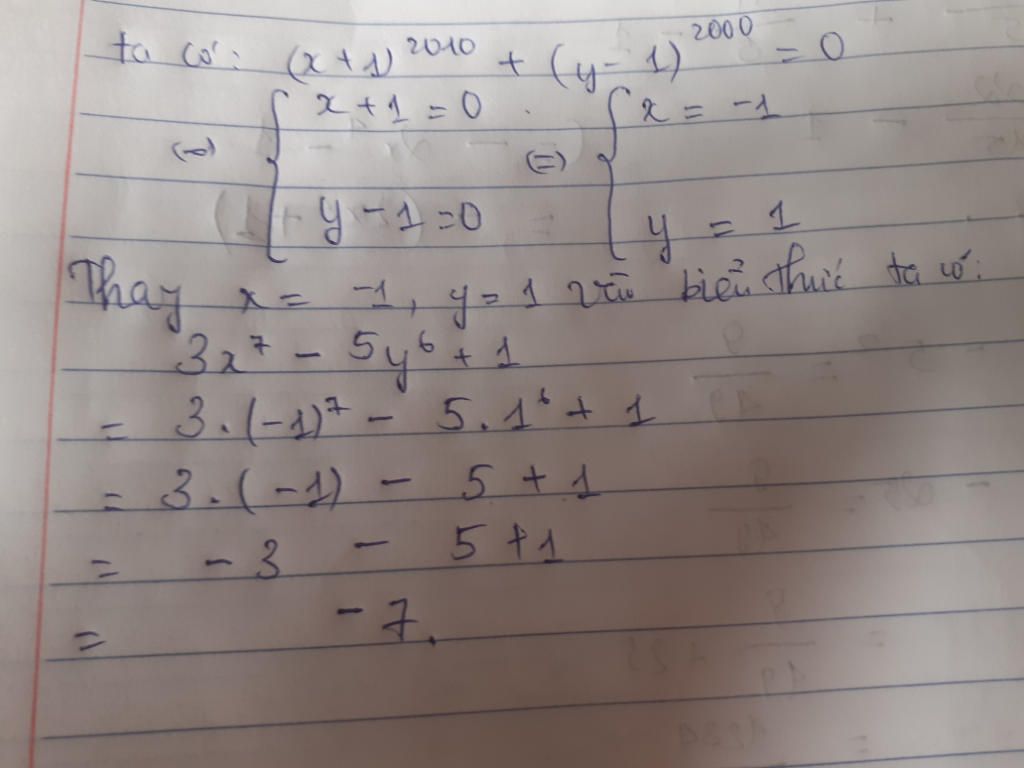 ta có: (x+1)^2010 + (y-1)^2000 = 0
(=) { x+1=0 (=) { x = -1
y-1=0 y = 1
Thay x = -1, y=1 vào biểu thức ta có:
3x^7 - 5y^6 + 1
= 3.(-1)^7 - 5.1^6 + 1
= 3.(-1) - 5 + 1
= -3 - 5+1
= -7.